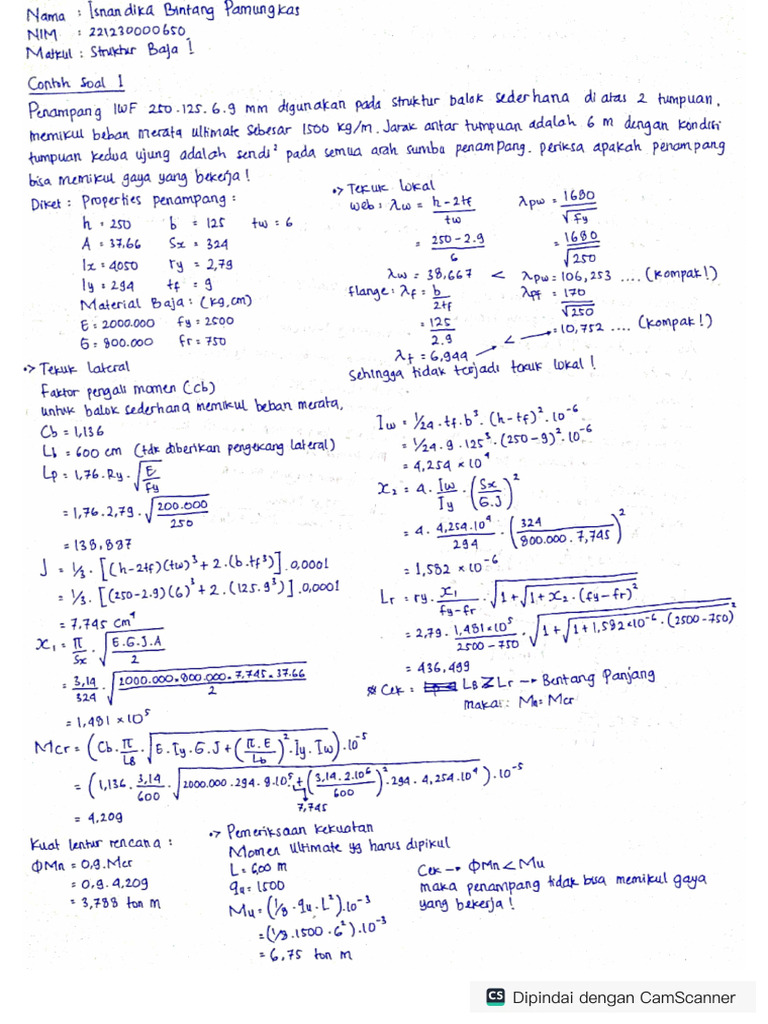 Nama : Isnandika Bintang Pamungkas
NIM : 221230000650
Matkul : Struktur Baja 1
Contoh Soal 1
Penampang IWF 250.125.6.9 mm digunakan pada struktur balok sederhana di atas 2 tumpuan,
memikul beban merata ultimate sebesar 1500 kg/m. Jarak antar tumpuan adalah 6 m dengan kondisi
tumpuan kedua ujung adalah sendi² pada semua arah sumbu penampang. periksa apakah penampang
bisa memikul gaya yang bekerja!
Diket : Properties penampang :
h = 250 b = 125 tw = 6
A = 37.66 Sx = 324
Ix = 4050 ry = 2,79
Iy = 294 tf = 9
Material Baja : (kg,cm)
E = 2000.000 fy = 2500
G = 800.000 fr = 750
•> Tekuk lokal
web : λw = h-2tf / tw λpw = 1680 / √fy
= 250-2.9 / 6 = 1680 / √250
λw = 38,667 < λpw = 106,253 .... (kompak!)
flange : λf = b / 2tf λpf = 170 / √250
= 125 / 2.9 = 10,752 .... (kompak!)
λf = 6,944 <
Sehingga tidak terjadi tekuk lokal !
•> Tekuk lateral
Faktor pengali momen (cb)
untuk balok sederhana memikul beban merata,
Cb = 1,136
Lb = 600 cm (tdk diberikan pengekang lateral)
Lp = 1,76 . Ry . √E/fy
= 1,76 . 2,79 . √200.000/250
= 138,887
J = 1/3 . [(h-2tf)(tw)³ + 2.(b.tf³)] . 0,0001
= 1/3 . [(250-2.9)(6)³ + 2.(125.9³)] . 0,0001
= 7,745 cm⁴
x₁ = π/Sx . √E.G.J.A / 2
= 3,14/324 . √2000.000.800.000.7,745.37.66 / 2
= 1,481 × 10⁵
Iw = 1/24 . tf . b³ . (h-tf)² . 10⁻⁶
= 1/24 . 9 . 125³ . (250-9)² . 10⁻⁶
= 4,254 × 10⁴
x₂ = 4 . Iw/Iy . (Sx/G.J)²
= 4 . 4,254.10⁴/294 . (324 / 800.000 . 7,745)²
= 1,582 × 10⁻⁶
Lr = ry . x₁/fy-fr . √1+√1+x₂.(fy-fr)²
= 2,79 . 1,481×10⁵ / 2500-750 . √1+√1+1,582×10⁻⁶.(2500-750)²
= 436,499
Cek : LB > Lr → Bentang Panjang
maka : Mn = Mcr
Mcr = (Cb . π/Lb . √E.Iy.G.J + (π.E/Lb)² . Iy . Iw) . 10⁻⁵
= (1,136 . 3,14/600 . √2000.000.294.8.10⁵ + (3,14.2.10⁶/600)² . 294 . 4,254.10⁴) . 10⁻⁵
7,745
= 4,209
Kuat lentur rencana :
ΦMn = 0,9 . Mcr
= 0,9 . 4,209
= 3,788 ton m
•> Pemeriksaan kekuatan
Momen Ultimate yg harus dipikul
L = 600 m
qu = 1500
Mu = (1/8 . qu . L²) . 10⁻³
= (1/8 . 1500 . 6²) . 10⁻³
= 6,75 ton m
Cek → ΦMn < Mu
maka penampang tidak bisa memikul gaya
yang bekerja !
CS Dipindai dengan CamScanner